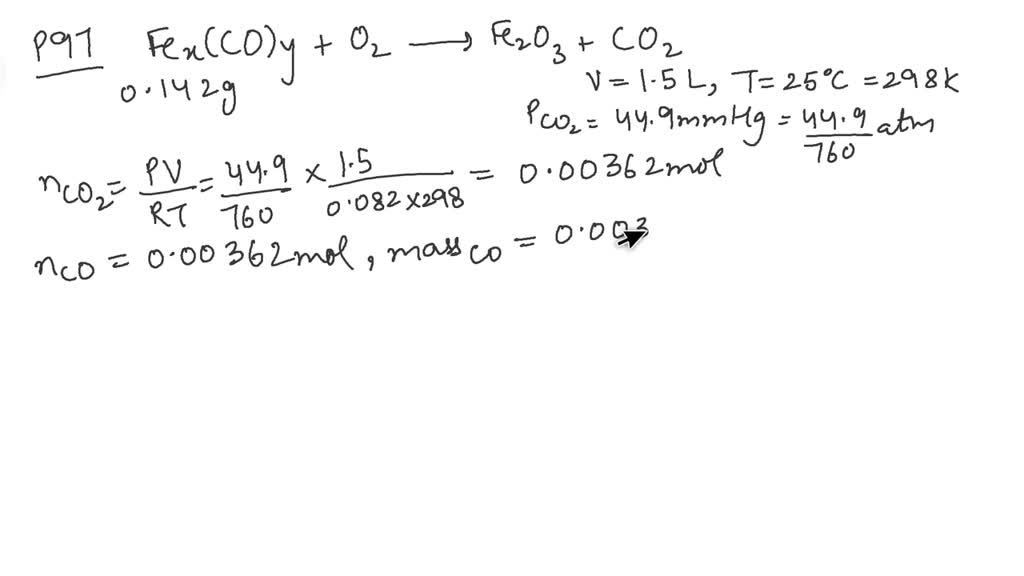 P97 Fex(CO)y + O2 ⟶ Fe2O3 + CO2
0.142g
V = 1.5 L, T = 25°C = 298K
PCO2 = 44.9mmHg = 44.9/760 atm
nCO2 = PV/RT = 44.9/760 × 1.5/0.082×298 = 0.00362mol
nCO = 0.00362mol, massCO = 0.003